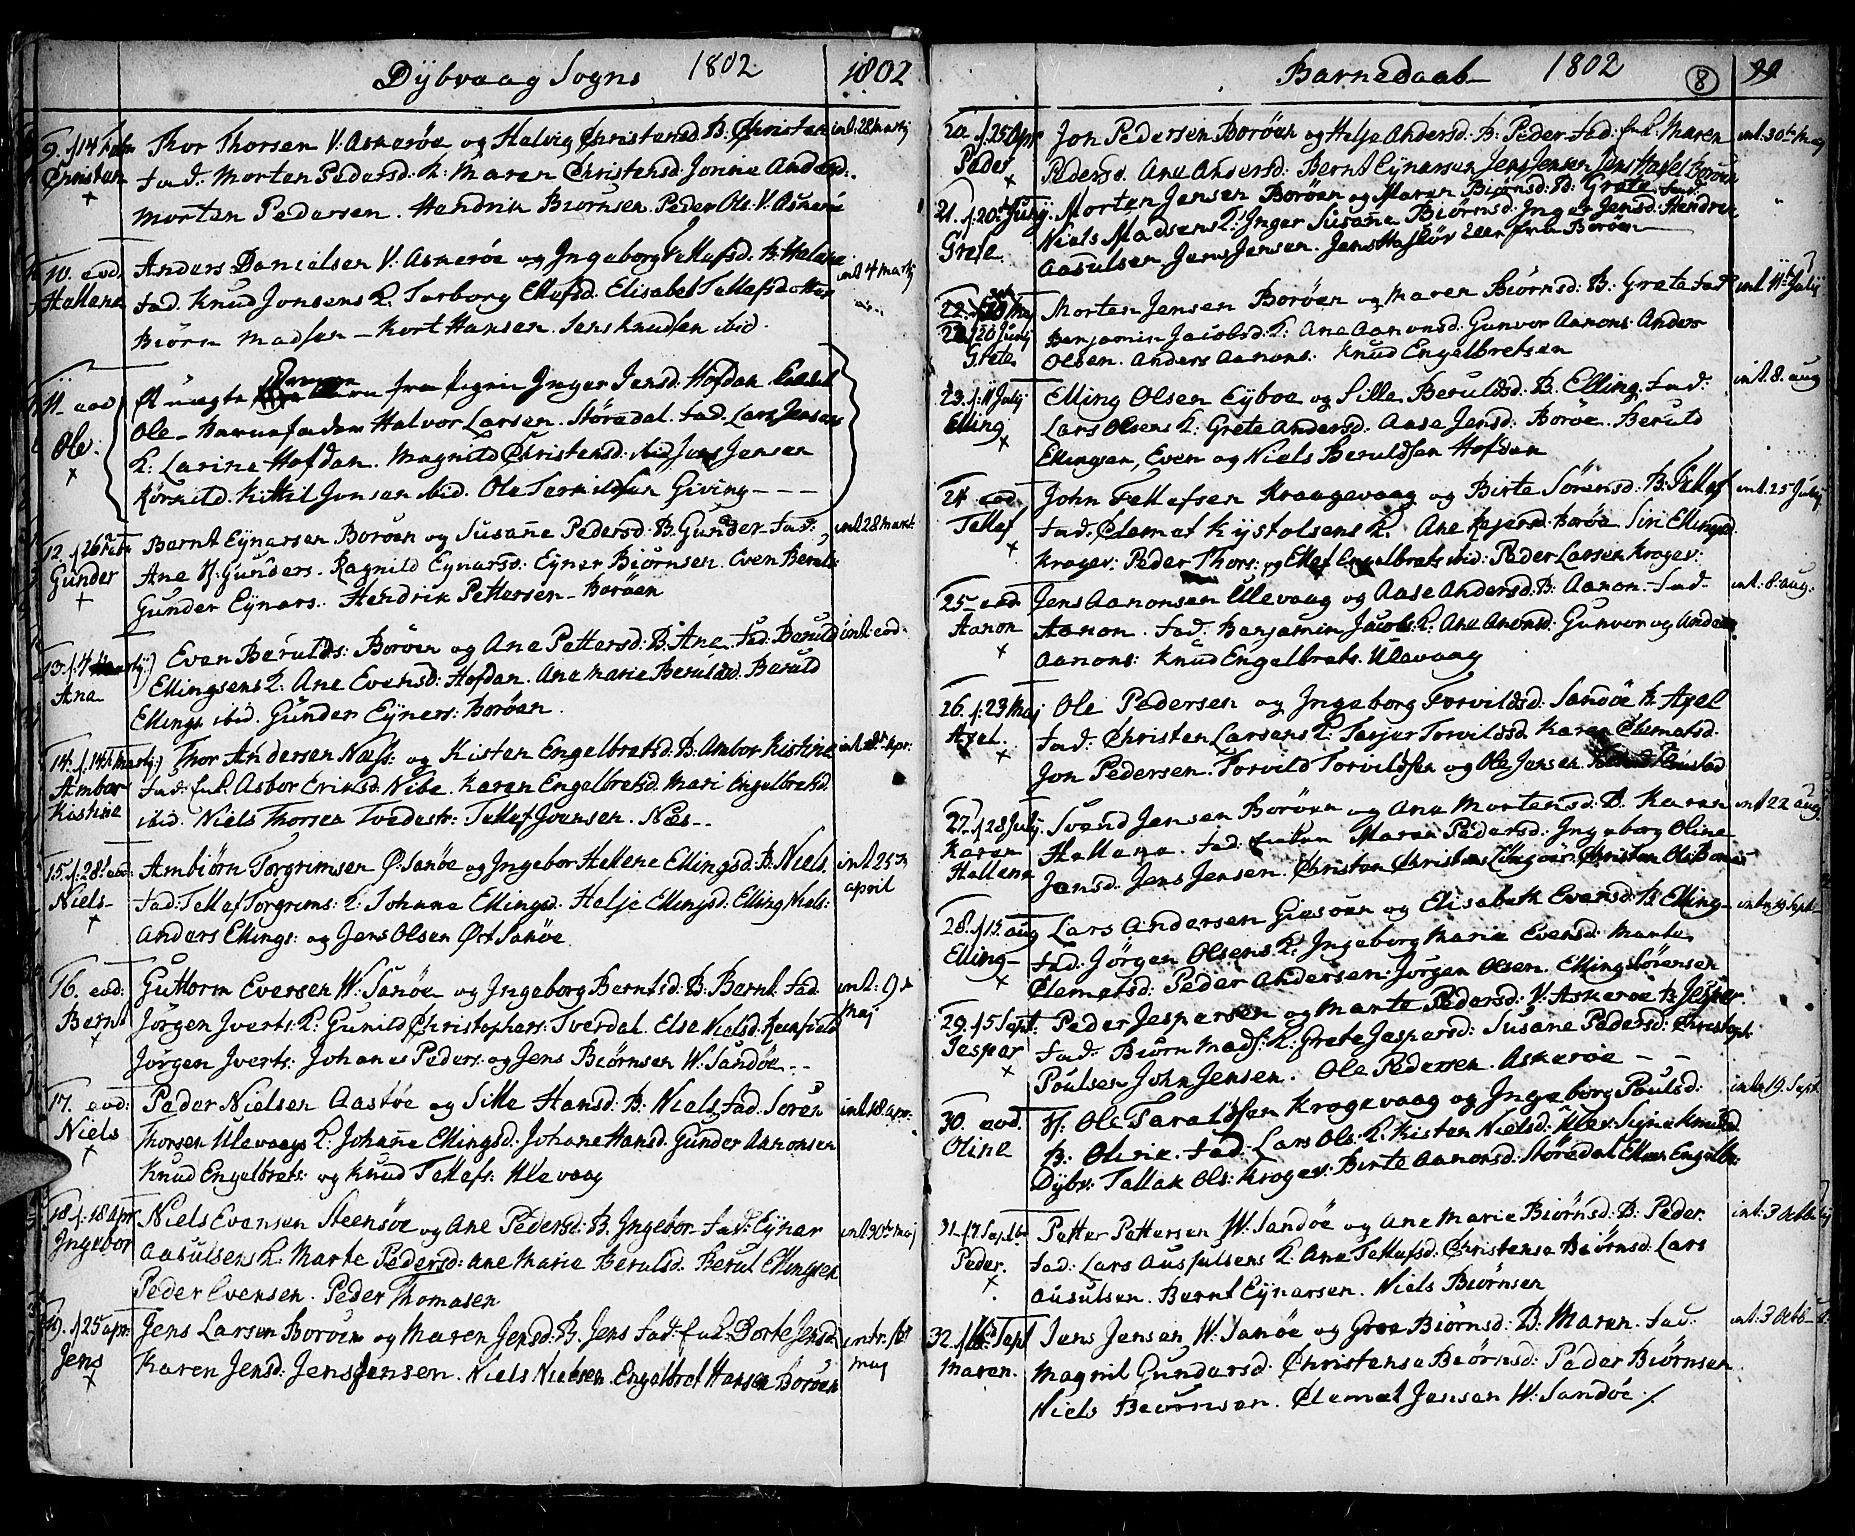 Dÿbvaag Sogns 1802 1802
9. f. 14 Febr Thor Thorsen V. Askerøe og Helvig Christensd: B. Christen int. 28 martj
Christen Fad: Morten Pedersd: K: Maren Christensd: Jorine Andersd:
Morten Pedersen. Hendrik Biørnsen. Peder Ols: V. Askerøe
10. eod. Anders Danielsen V. Askerøe og Jngeborg Tellefsd. B. Hellene int 4 martj
Hellene Fad. Knud Jonsens K. Torborg Ellefsd. Elisabet Tellefsdotter
Biørn Madsen – Kort Hansen. Jens Knudsen ibid.
11. eod Et uægte fra Pigen Jnger Jensd: Hofdan kaldet
Ole. Ole – Barnefader Halvor Larsen. Støredal. Fad. Lars Jensens
K: Larine Hofdan. Magnild Christensd: ibid Jens Jensen
Kittil Jonsen ibid. Ole Terkildsen Giving – – –
12. f. 26 Febr Bernt Eÿnersen Borøen og Susane Pedersd: B. Gunder – Fad: int. 28 mart:
Gunder Ane H. Gunders. Ragnild Eynersd: Eyner Biørnsen. Even Beruls:
Gunder Eynars: Hendrik Pettersen – Borøen
13. f. 4 Martj) Even Berulds: Borøen og Ane Pettersd: B: Ane Fad: Beruld int: eod.
Ana Ellingsens K. Ane Evensd: Hofdan. Ane Marie Beruldsd. Beruld
Ellings ibid. Gunder Eyners: Borøen.
14. f. 14 Martj:) Thor Andersen Næss: og Kisten Engelbretsd: B: Ambor Kistine int. apr:
Ambor Fad: Asbor Eriksd: Nibe. Karen Engelbretsd. Mari Engelbretsd.
Kistine ibid. Niels Thorsen Tvedestr: Tellef Jvensen. Næs –
15. f. 28 eod: Ambiørn Torgrimsen Ø. Sanøe og Jngebor Hellene Ellingsd: B. Niels. int 25
Niels – Fad: Tellef Torgrims: K: Johanne Ellingsd: Helje Ellingsd: Elling Niels: april
Anders Ellings: og Jens Olsen Øst Sanøe.
16. eod: Guttorm Eversen W: Sanøe og Jngeborg Berntsd: B: Bernt. Fad int: 9 d
Bernt Jørgen Jverts: K: Gunild Christophers: Tverdal. Else Nielsd: maj
Jørgen Jverts: Johanes Peders: og Jens Biørnsen W: Sandøe –
17. eod: Peder Nielsen Aastøe og Sille Hansd: B: Niels Fad: Soren int 18 apr:
Niels Thorsen Ulevaags K: Johane Ellingsd: Johane Hansd: Gunder Aanonsen
Knud Engelbrets: og Knud Tellefs: Ulevaag
18 f. 18 apr Niels Evensen Steensøe og Ane Pedersd: B. Jngebor – Fad: Eÿner int 30te maj
Jngebor Aasulsens K: Marte Pedersd: Ane Marie Berulsd. Berul Ellingsen
Peder Evensen. Peder Thomasen
19. f 25 apr: Jens Larsen Borøen og Maren Jensd: B. Jens Fad: Enk. Dorte Jensd intr.
Jens Karen Jensd: Jens Jensen. Niels Nielsen. Engelbret Hansen Borøen maj

Barnedaab 1802 8 99
20 f. 25 Apr Jon Pedersen Borøen og Helje Andersd: B: Peder Fad: Enk. Maren int 30te Maj
Peder Pedersd. Ane Andersd: Bernt Eynarsen Jens Jensen Jens Borøen
21. f. 20 Junj. Morten Jensen Borøen og Maren Biørnsd: B: Grete. Fad:
Grete Niels Madsens K: Jnger Susane Biørnsd. Jnger Jensd: Hendrik
Aasulsen Jens Jensen. Borøen
22. f 20 Junj Morten Jensen Borøen og Maren Biørnsd: B: Grete Fad: int 11te Julij
Grete Benjamin Jacobsd: K: Ane Aanonsd: Gunvor Aanons. Anders
Olsen. Anders Aanons: Knud Engelbretsen
23. f. 11 Julij Elling Olsen Eÿboe og Sille Beruldsd: B. Elling. Fad: int. 8. aug
Elling Lars Olsens K: Grete Andersd: Aase Jensd: Borøe. Beruld
Ellingsen, Even og Niels Beruldsen Hofdan
24 eod: John Tellefsen Kraagevaag og Birte Sørensd: B: Tellef int 25 Julij
Tellef Fad: Clemet Kystolsens K. Ane Borøe Siri Ellingsd:
Kragev: Peder Thors: og Ellef Engelbrets ibid: Peder Larsen Kragev:
25 eod Jens Aanonsen Ulevaag og Aase Andersd: B: Aanon. Fad: int. 8. aug:
Aanon Aanon. Fad: Benjamin Jacobs: K. Ane Anonsd: Gunvor og Anders
Aanons: Knud Engelbrets: Ulevaag
26. f. 23 Maj Ole Pedersen og Jngeborg Torvildsd: Sandøe B: Axel
Axel. Fad: Christen Larsens K: Torvildsd: Karen Clemetsd:
Jon Pedersen. Torvild Torvildsen og Ole Jensen
27. f 28 Julij. Svend Jensen Borøen og Ane Mortensd: B. Karen int 22 aug
Karen Hellene. Fad: Maren Pedersd: Jngeborg Oline
Hellene Jensd. Jens Jensen. Christen Christens Christen Ols:
28. f 15 aug Lars Andersen Giesøen og Elisabeth Evensd: B: Elling – int. 19 Sept:
Elling – Fad: Jørgen Olsens K: Jngeborg Marie Evensd: Marte
Clemetsd: Peder Andersen. Jørgen Olsen. Elling Sørensen
29. f 5 Sept: Peder Jespersen og Marte Pedersd: V: Askerøe B: Jesper
Jesper Fad: Biørn Mads: K: Grete Jespersd: Susane Pedersd: Christoph
Poulsen John Jensen. Ole Pedersen. Askerøe – –
30. eod. Ole Taraldsen Kragevaag og Jngeborg Poulsd: int 19 Sept
Oline B. Oline. Fad. Lars Ols: K. Kisten Nielsd: Ulev: Signe Knudsd:
Dÿbv: Tallak Ols: Kragev: Birte Aanonsd: Støredal Engelbr:
31. f 17 Septbr Petter Pettersen W: Sandøe og Ane Marie Biørnsd: B: Peder int. 3 octb
Peder. Fad: Lars Aussulsens K: Ane Tellefsd: Christense Biørnsd: Lars
Ausulsen. Bernt Eynarsen. Niels Biørnsen
32. f Sept Jens Jensen W: Sanøe og Groe Biørnsd: B: Maren. Fad: int. 3 Octb –
Maren. Magnil Gundersd: Christense Biørnsd: Peder Biørnsen
Niels Beørnsen. Clemet Jensen W: Sandøe. /